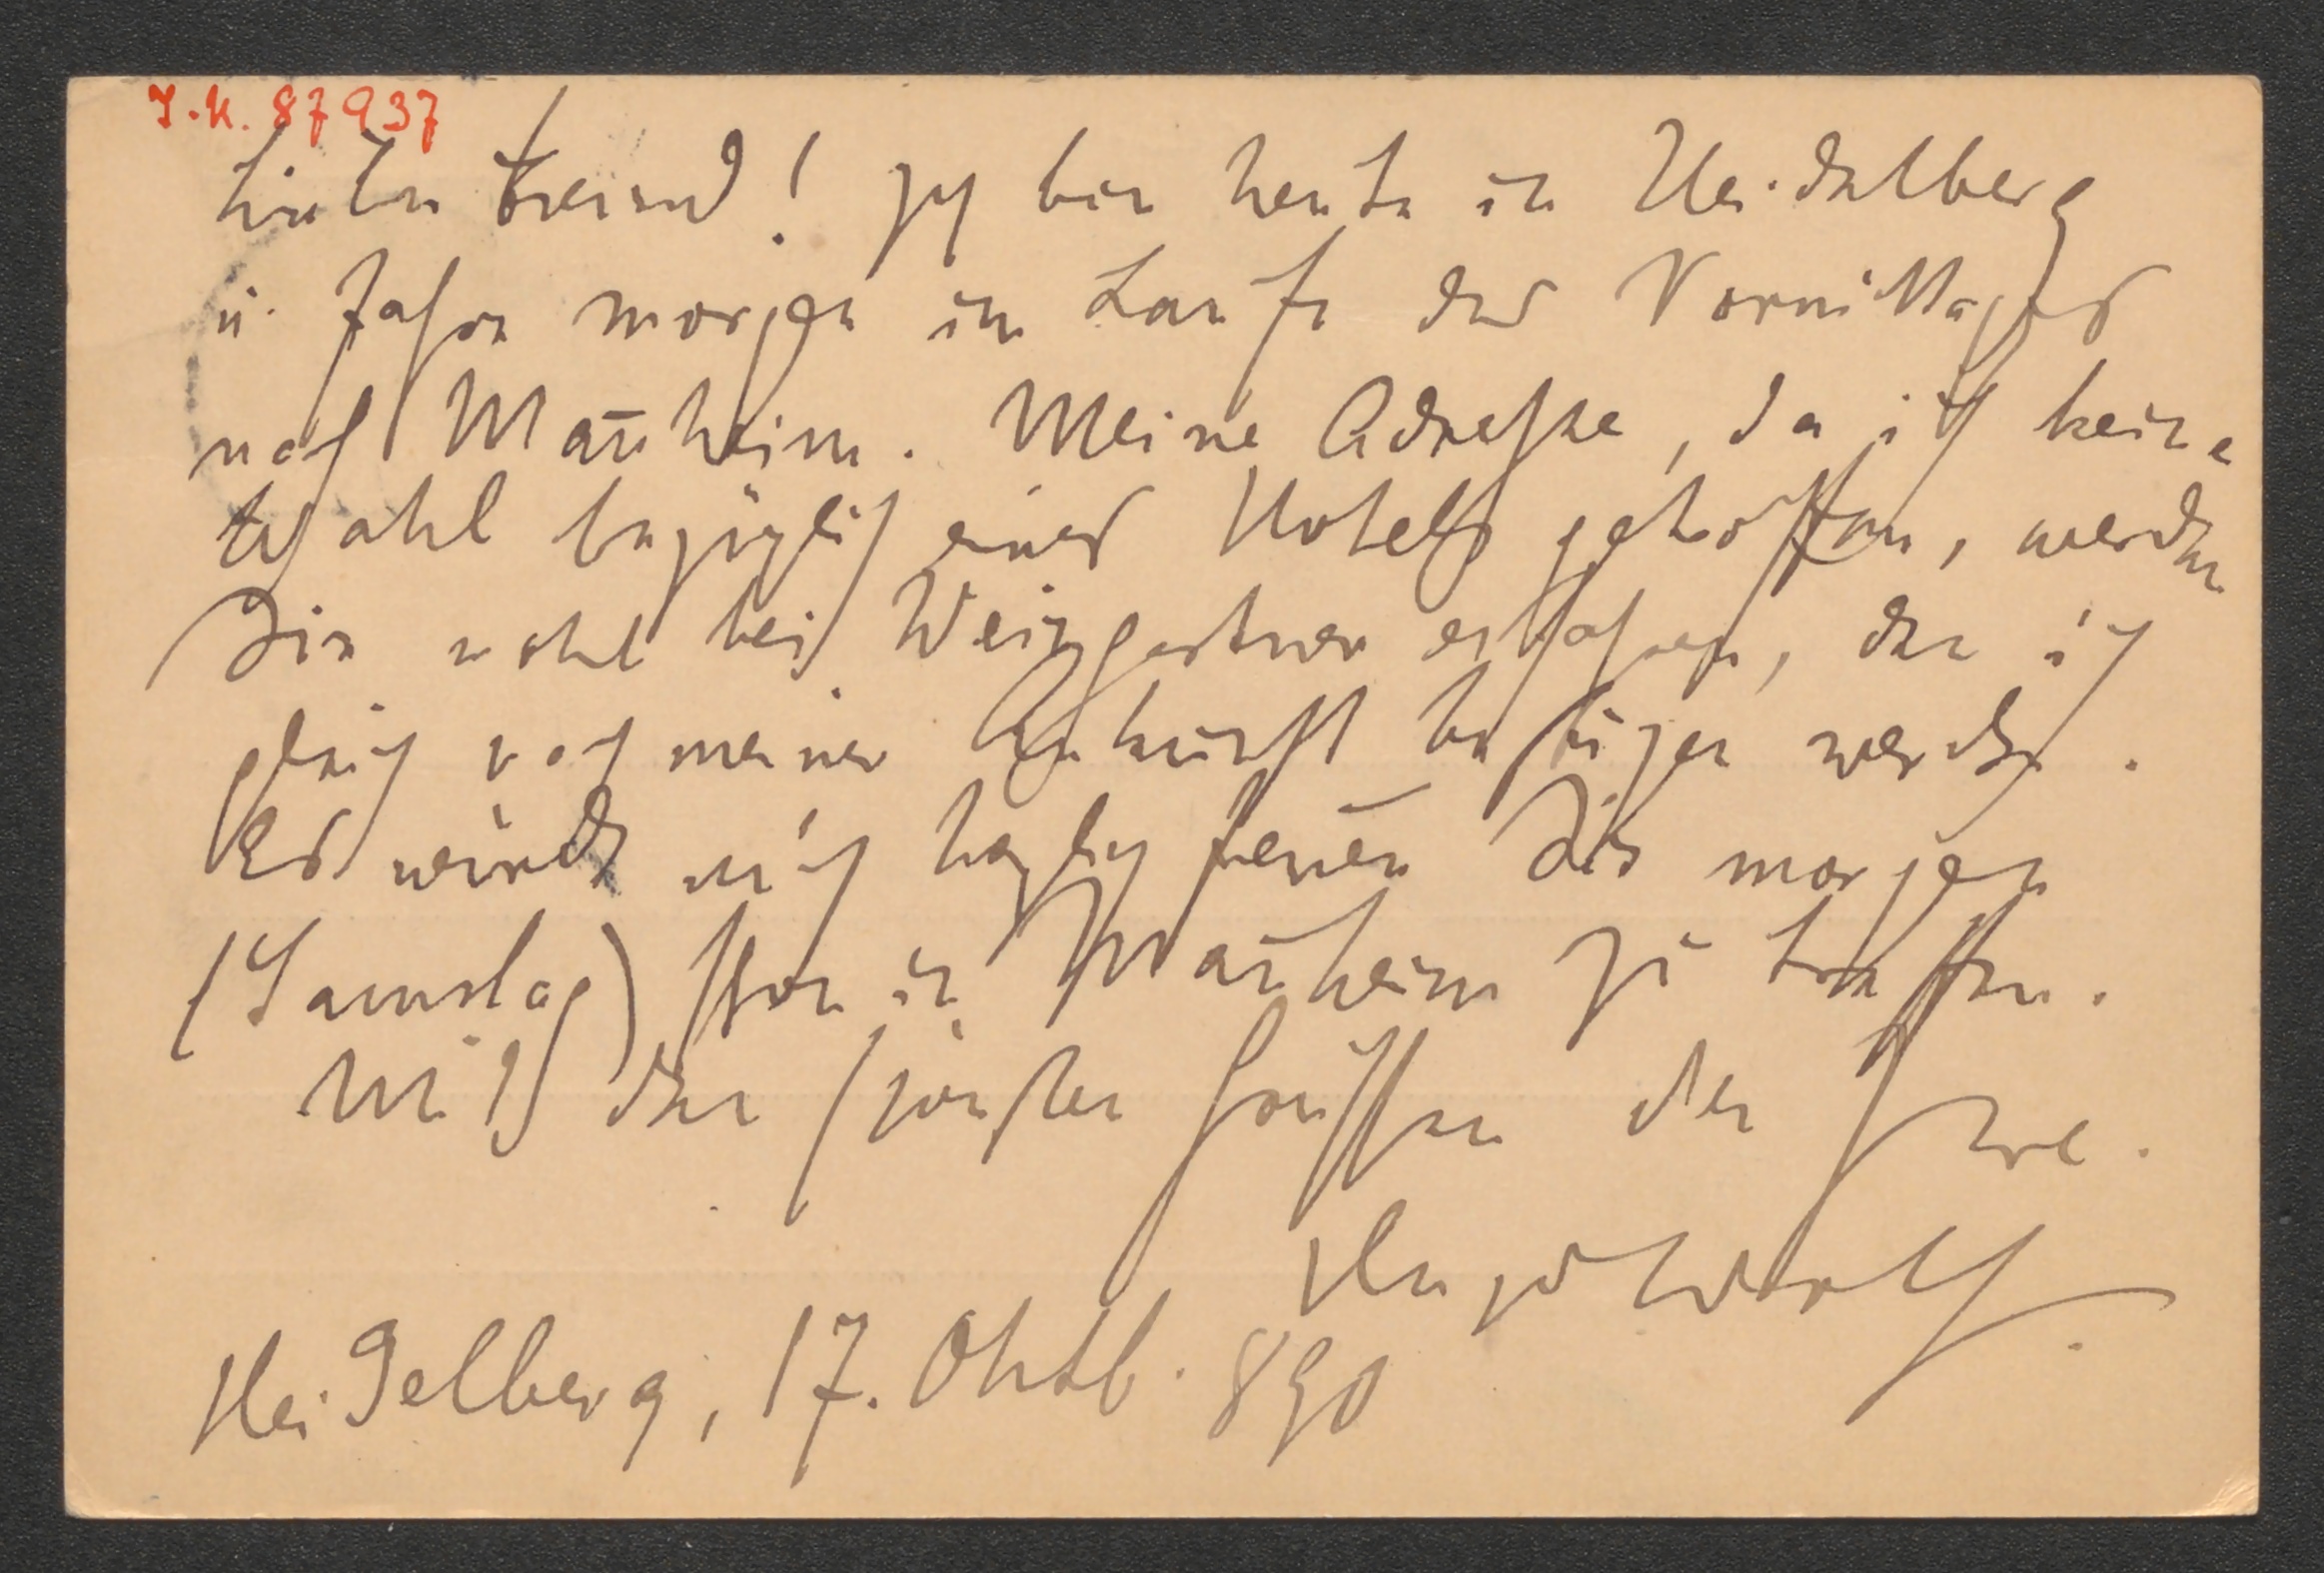 I.N. 87937
Lieber Freund! Ich bin heute in Heidelberg
u. fahre morgen im Laufe des Vormittages
nach Man̄heim. Meine Adresse, da ich keine
Wahl bezüglich eines Hotels getroffen, werden
Sie wohl bei Weingartner erfahren, den ich
gleich nach meiner Ankunft besuchen werde.
Es würde mich herzlich freuen Sie morgen
(Samstag) schon in Man̄heim zu treffen.
Mit den schönsten Grüssen der Ihre.
Hugo Wolf
Heidelberg, 17. Oktb. 890